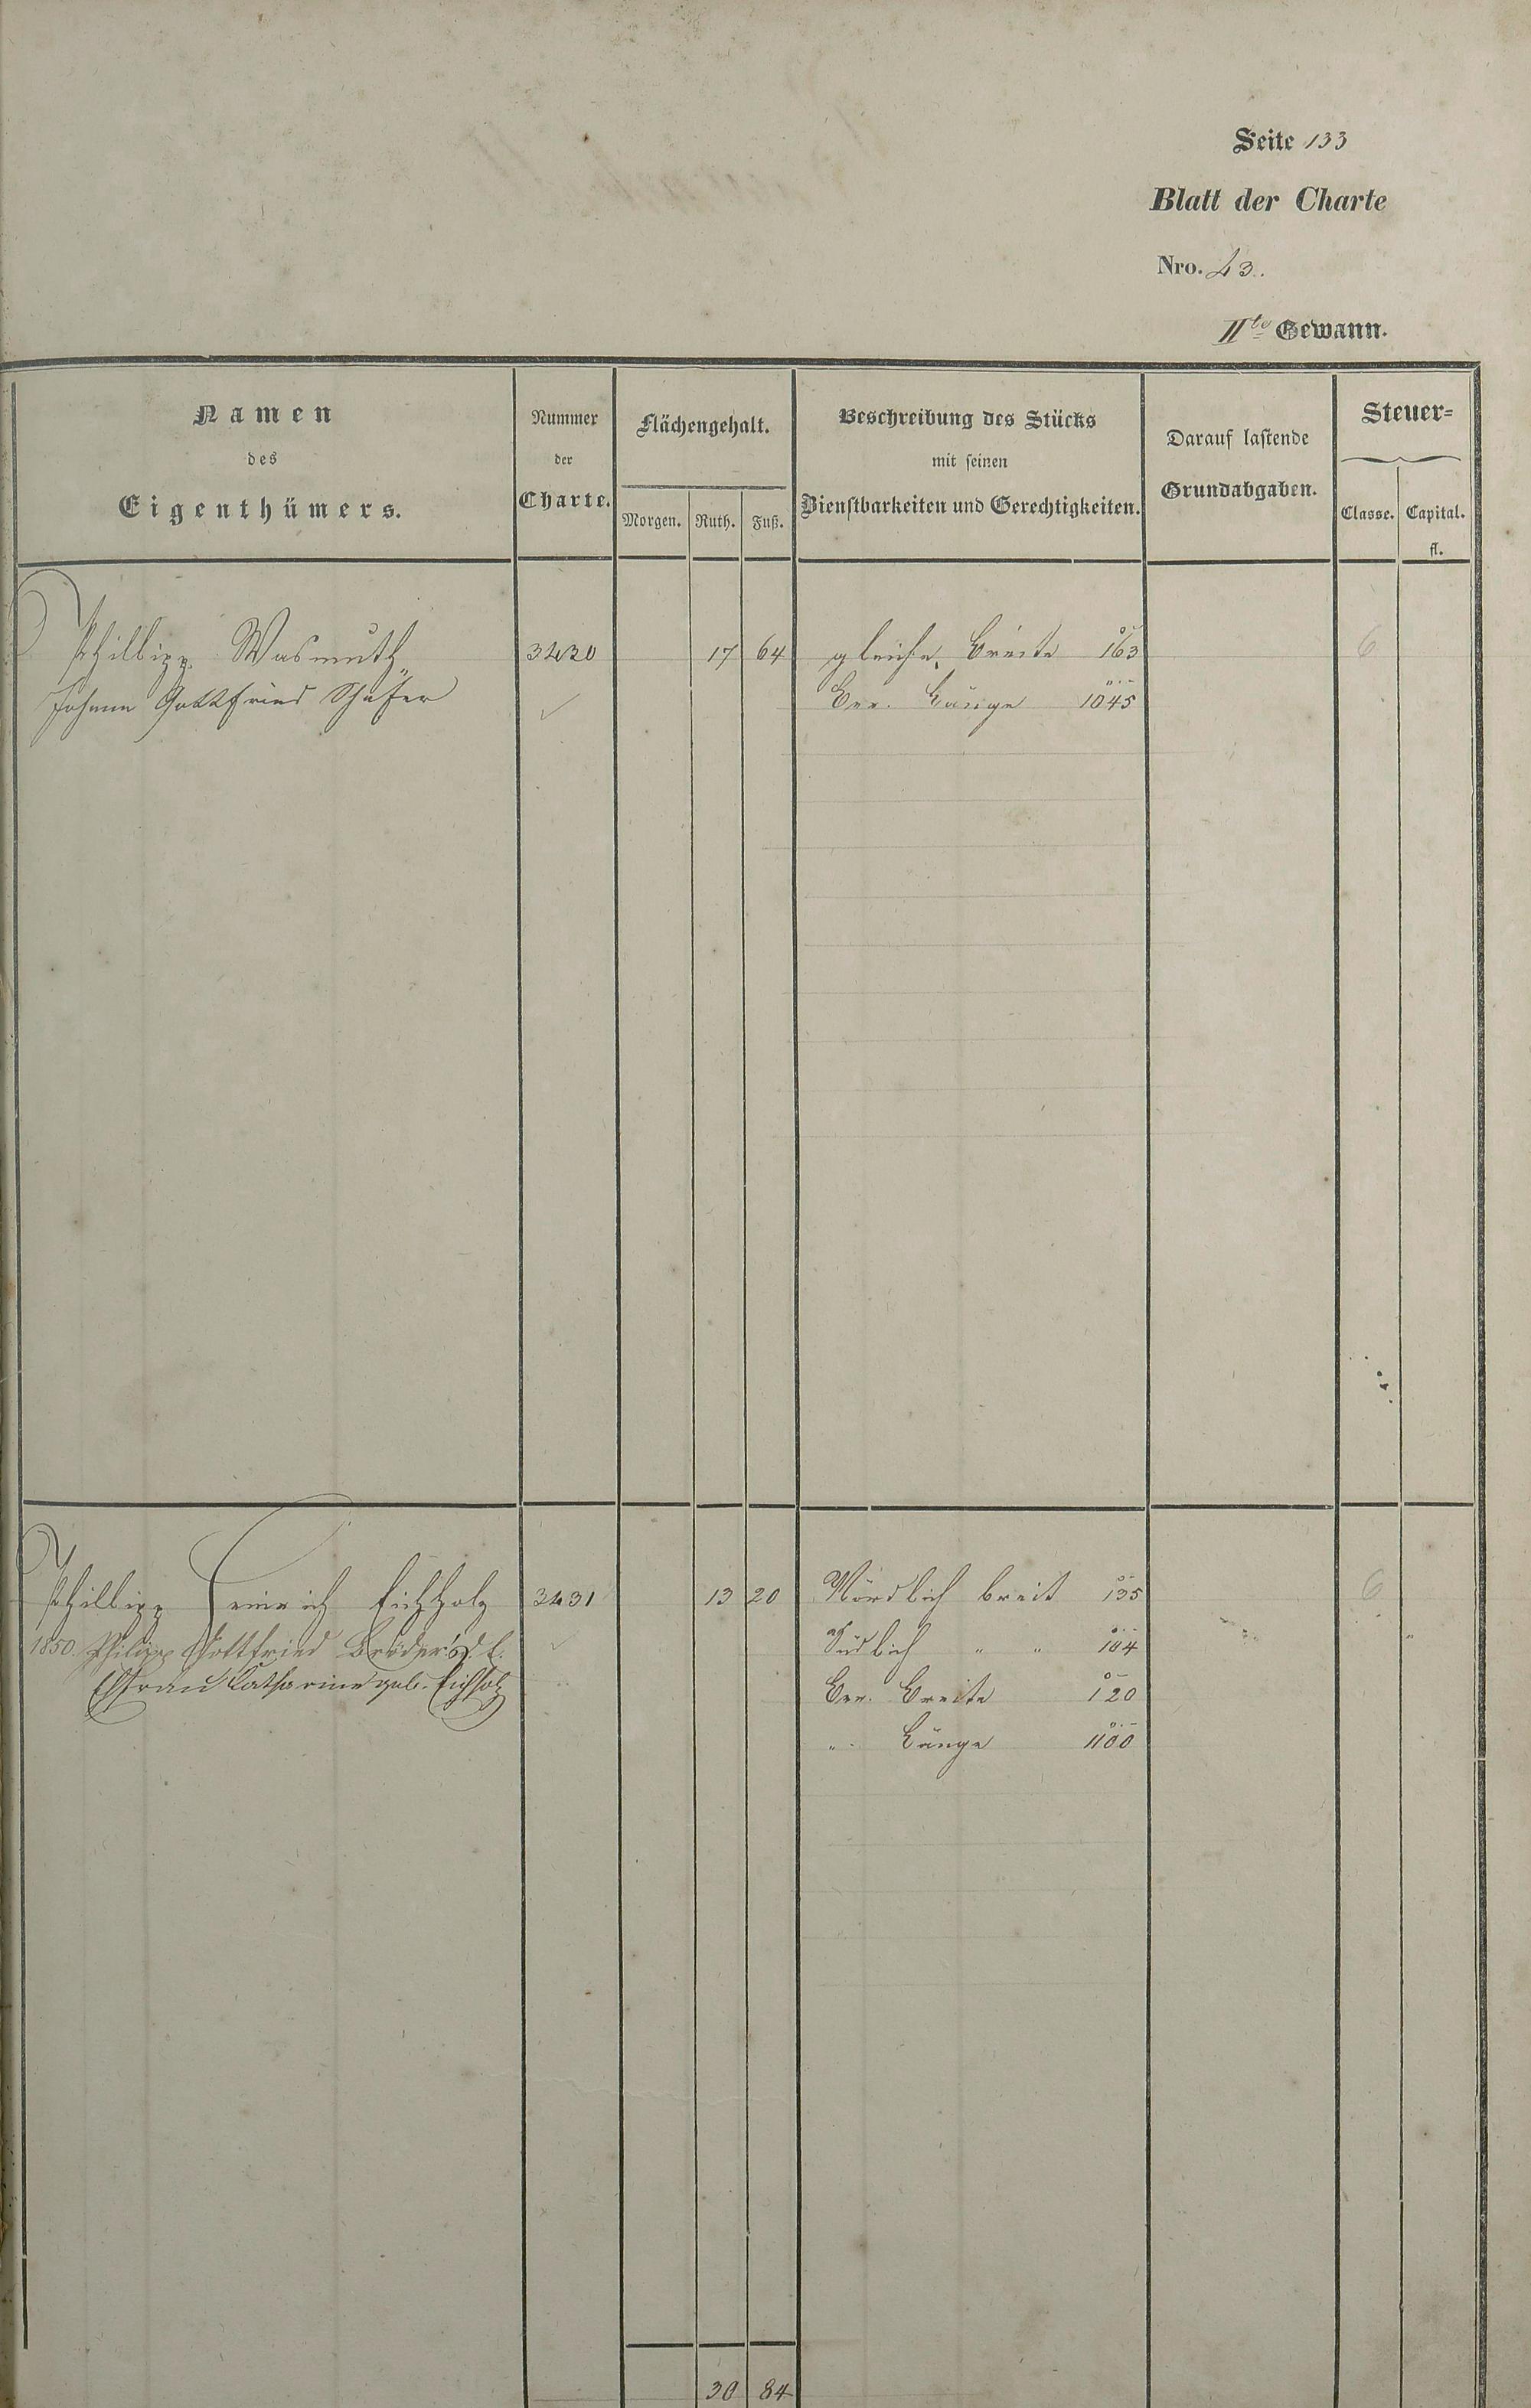 Seite 133
Blatt der Charte
Nro. 43.
IIte Gewann.
Namen des Eigenthümers.
Nummer der Charte.
Flächengehalt.
Morgen. Ruth. Fuß.
Beschreibung des Stücks mit seinen Dienstbarkeiten und Gerechtigkeiten.
Darauf lastende Grundabgaben.
Steuer=
Classe. Capital.
fl.
Philipp Wasmuth 3430 17 64 gleiche Breite 163 6
Johann Gottfried Schäfer ✓ Ber. Länge 1045
Philipp Heinrich Eichholz 3431 13 20 Nördlich breit 135 6
1850. Philipp Gottfried ✓ Südlich " " 104
Ehfrau Catharine geb. Eichholz Ber. Breite 120
" Länge 1100
30 84